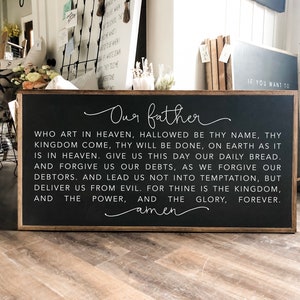 IF YOU WANT TO
Our father
WHO ART IN HEAVEN, HALLOWED BE THY NAME, THY
KINGDOM COME, THY WILL BE DONE, ON EARTH AS IT
IS IN HEAVEN. GIVE US THIS DAY OUR DAILY BREAD.
AND FORGIVE US OUR DEBTS, AS WE FORGIVE OUR
DEBTORS. AND LEAD US NOT INTO TEMPTATION, BUT
DELIVER US FROM EVIL. FOR THINE IS THE KINGDOM,
AND THE POWER, AND THE GLORY, FOREVER.
amen